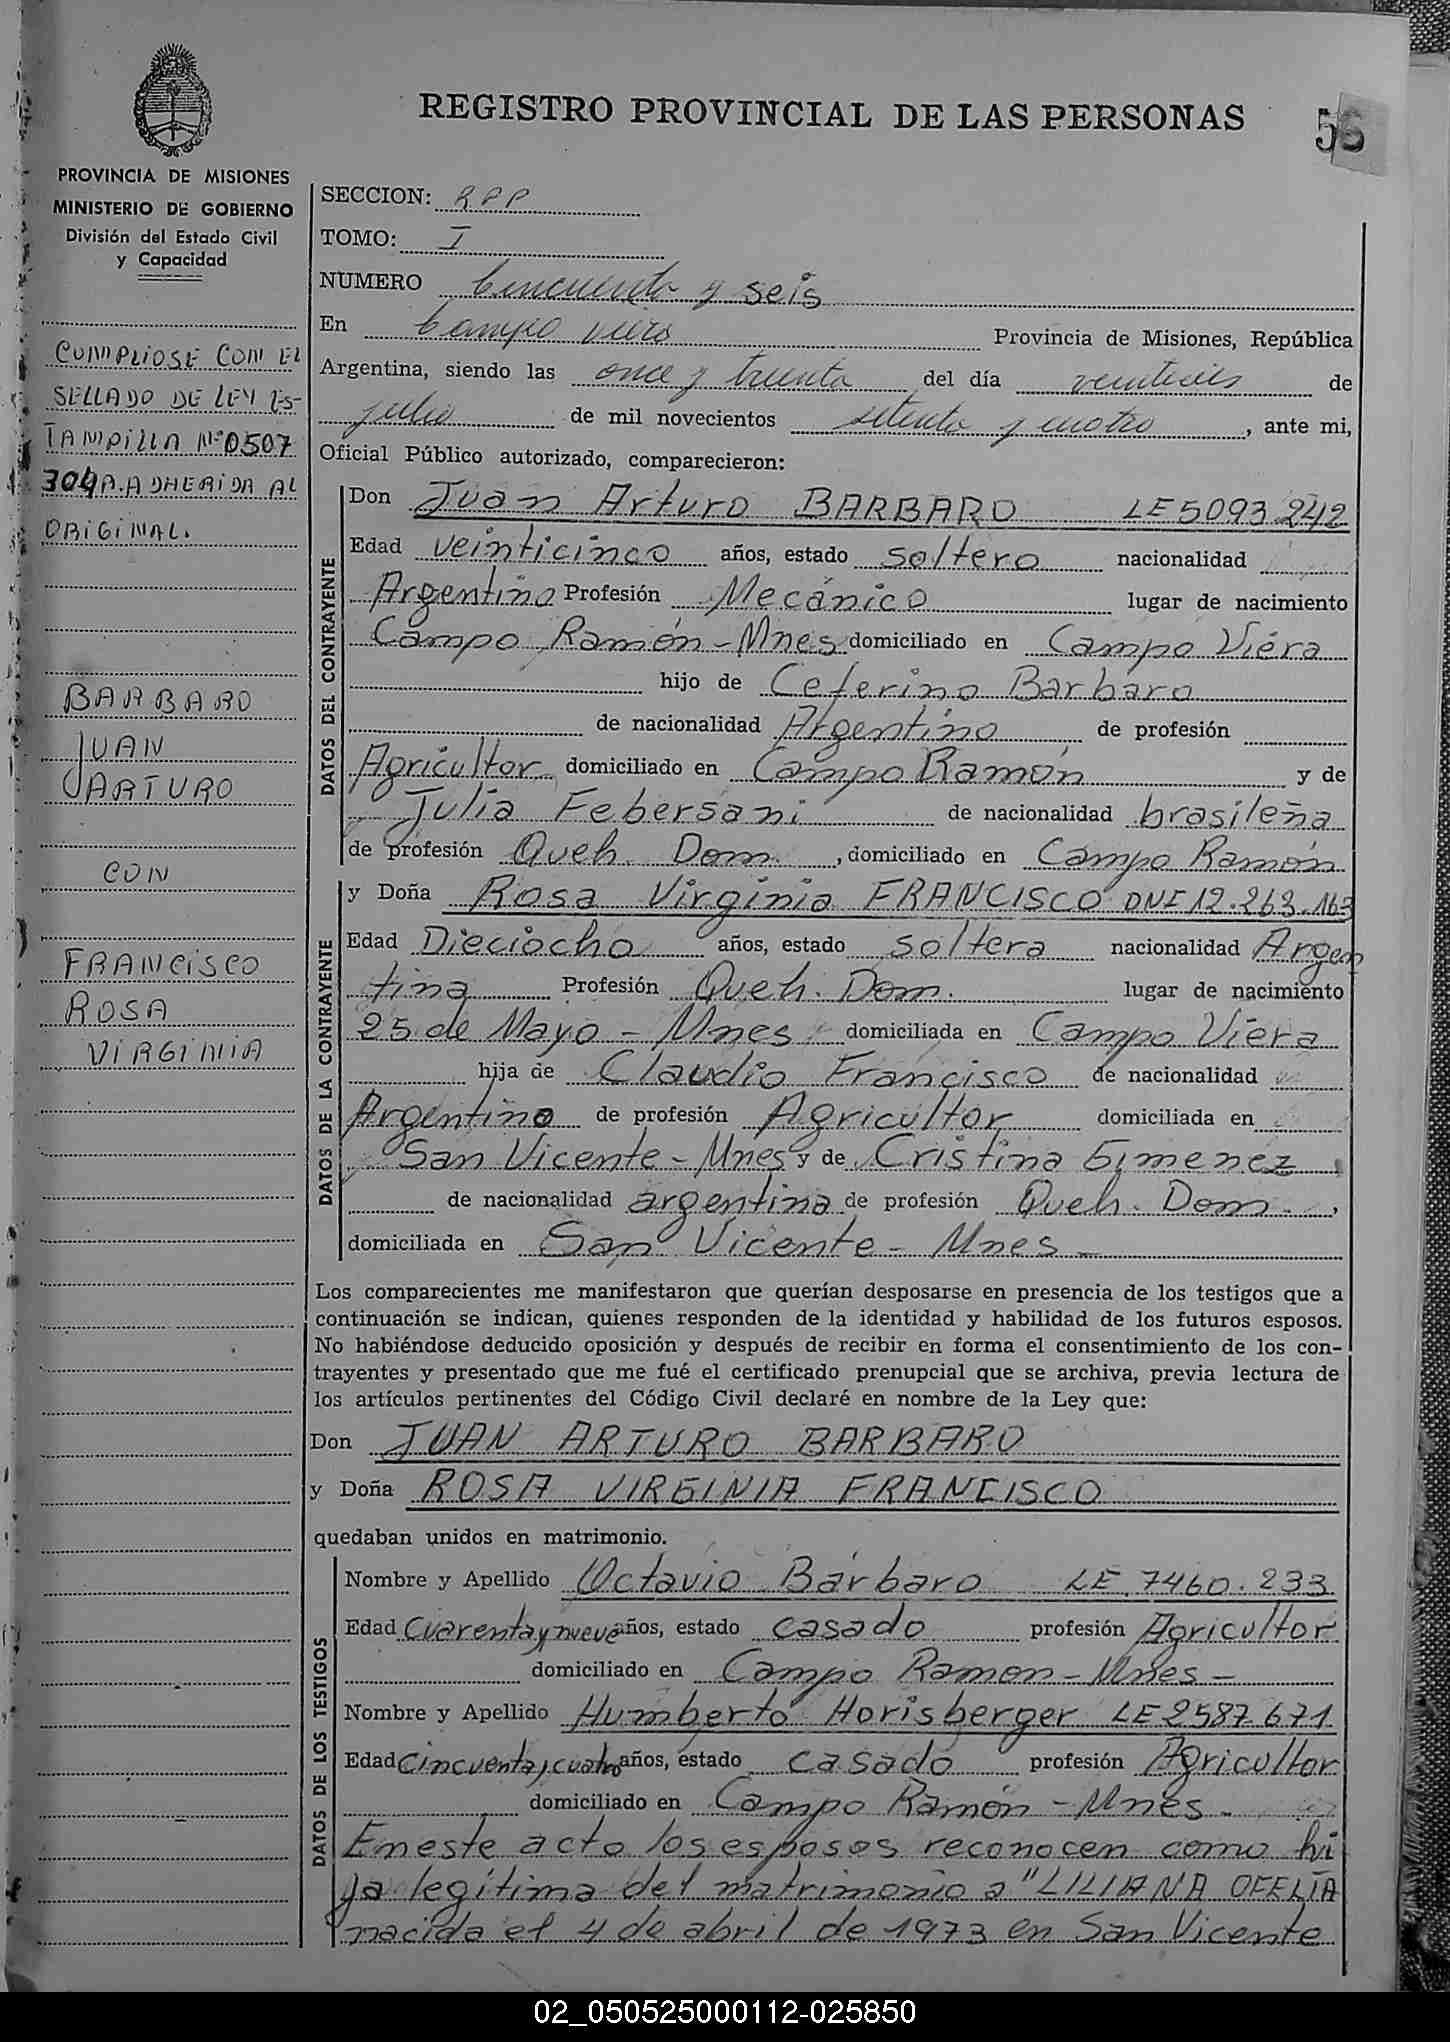 REGISTRO PROVINCIAL DE LAS PERSONAS
56
PROVINCIA DE MISIONES
MINISTERIO DE GOBIERNO
División del Estado Civil
y Capacidad
CUMPLIOSE CON EL
SELLADO DE LEY ES-
TAMPILLA Nº 0507
304A. ADHERIDA AL
ORIGINAL.
BARBARO
JUAN
ARTURO
CON
FRANCISCO
ROSA
VIRGINIA
SECCION: RPP
TOMO: I
NUMERO Cincuenta y seis
En Campo viera Provincia de Misiones, República
Argentina, siendo las once y treinta del día veintiseis de
julio de mil novecientos setenta y cuatro, ante mi,
Oficial Público autorizado, comparecieron:
DATOS DEL CONTRAYENTE
Don Juan Arturo BARBARO LE 5093242
Edad veinticinco años, estado soltero nacionalidad
Argentino Profesión Mecánico lugar de nacimiento
Campo Ramón - Mnes domiciliado en Campo Viéra
hijo de Ceferino Barbaro
de nacionalidad Argentino de profesión
Agricultor domiciliado en Campo Ramón y de
Julia Febersani de nacionalidad brasileña
de profesión Queh. Dom., domiciliado en Campo Ramón
DATOS DE LA CONTRAYENTE
y Doña Rosa Virginia FRANCISCO DNI 12.263.163
Edad Dieciocho años, estado soltera nacionalidad Argen
tina Profesión Queh. Dom. lugar de nacimiento
25 de Mayo - Mnes domiciliada en Campo Viera
hija de Claudio Francisco de nacionalidad
Argentino de profesión Agricultor domiciliada en
San Vicente - Mnes y de Cristina Gimenez,
de nacionalidad argentina de profesión Queh. Dom.,
domiciliada en San Vicente - Mnes -
Los comparecientes me manifestaron que querían desposarse en presencia de los testigos que a
continuación se indican, quienes responden de la identidad y habilidad de los futuros esposos.
No habiéndose deducido oposición y después de recibir en forma el consentimiento de los con-
trayentes y presentado que me fué el certificado prenupcial que se archiva, previa lectura de
los artículos pertinentes del Código Civil declaré en nombre de la Ley que:
Don JUAN ARTURO BARBARO
y Doña ROSA VIRGINIA FRANCISCO
quedaban unidos en matrimonio.
DATOS DE LOS TESTIGOS
Nombre y Apellido Octavio Bárbaro LE 7460.233
Edad Cuarenta y nueve años, estado casado profesión Agricultor
domiciliado en Campo Ramon - Mnes -
Nombre y Apellido Humberto Horisberger LE 2587671
Edad Cincuenta y cuatro años, estado casado profesión Agricultor
domiciliado en Campo Ramón - Mnes -
En este acto los esposos reconocen como hi
ja legítima del matrimonio a "LILIANA OFELIA
nacida el 4 de abril de 1973 en San Vicente
02_050525000112-025850